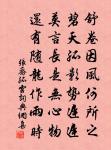 舒卷因風何所之
碧天孤影勢逶迤
莫言長是無心物
還有隨龍作雨時
張喬孤雲詞典網集